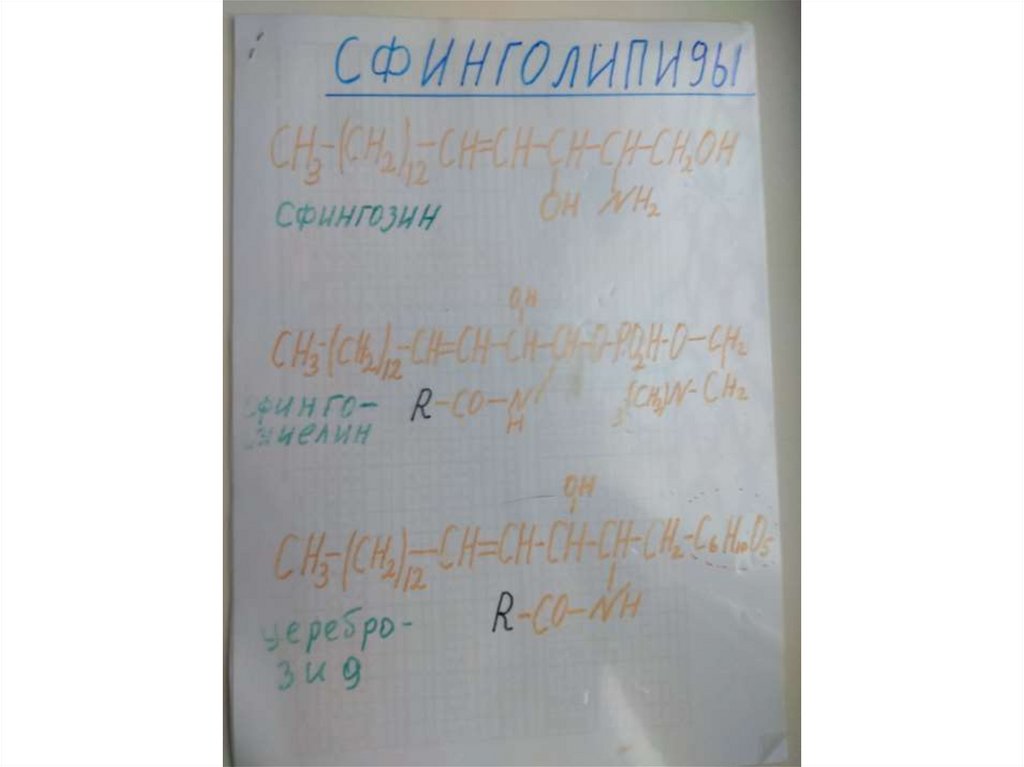 СФИНГОЛИПИДЫ
CH₃-(CH₂)₁₂-CH=CH-CH-CH-CH₂OH
OH NH₂
Сфингозин
OH
CH₃-(CH₂)₁₂-CH=CH-CH-CH-O-PO₂H-O-CH₂
R-CO-N (CH₃)₃N-CH₂
H
сфинго-
миелин
OH
CH₃-(CH₂)₁₂-CH=CH-CH-CH-CH₂-C₆H₁₀O₅
R-CO-NH
церебро-
зид